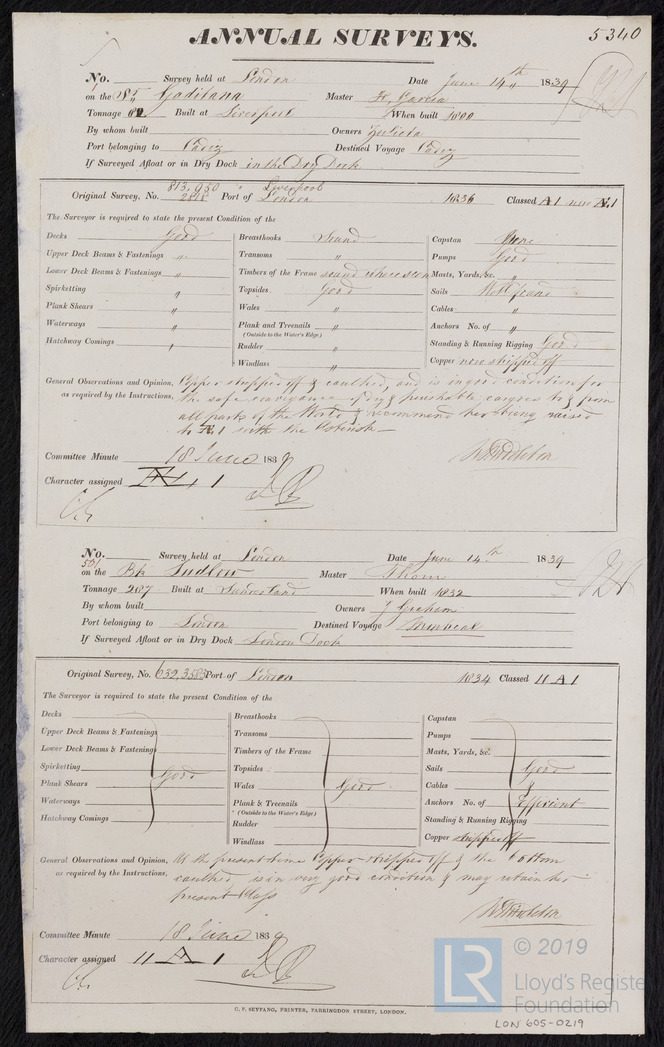 ANNUAL SURVEYS.
5340
No. Survey held at London Date June 14th 1839
on the Gaditana Master Garcia
Tonnage Built at Liverpool When built 1800
By whom built Owners Zulueta
Port belonging to Cadiz Destined Voyage Cadiz
If Surveyed Afloat or in Dry Dock in the Dry Dock
813.950 " Liverpool
Original Survey, No. 2818 Port of London 1836 Classed Æ1
The Surveyor is required to state the present Condition of the
Decks Good
Upper Deck Beams & Fastenings "
Lower Deck Beams & Fastenings "
Spirketting "
Plank Shears "
Waterways "
Hatchway Comings "
Breasthooks Sound
Transoms "
Timbers of the Frame sound where seen
Topsides Good
Wales "
Plank and Treenails "
(Outside to the Water's Edge.)
Rudder "
Windlass "
Capstan None
Pumps Good
Masts, Yards, &c. "
Sails Well found
Cables "
Anchors No. of "
Standing & Running Rigging Good
Copper now stripped off
General Observations and Opinion, Copper stripped off & caulked, and is in good condition for
as required by the Instructions, the safe conveyance of dry & perishable cargoes to & from
all parts of the World & recommend her being raised
to Æ1 with the Asterisk
Committee Minute 18 June 1839
Character assigned Æ 1
No. Survey held at London Date June 14th 1839
on the Bk Ludlow Master Thom
Tonnage 287 Built at Sunderland When built 1832
By whom built Owners J Graham
Port belonging to London Destined Voyage Montreal
If Surveyed Afloat or in Dry Dock London Dock
Original Survey, No. 632,3583 Port of London 1834 Classed 11 A 1
The Surveyor is required to state the present Condition of the
Decks
Upper Deck Beams & Fastenings
Lower Deck Beams & Fastenings
Spirketting
Good
Plank Shears
Waterways
Hatchway Comings
Breasthooks
Transoms
Timbers of the Frame
Topsides
Wales Good
Plank & Treenails
(Outside to the Water's Edge.)
Rudder
Windlass
Capstan
Pumps
Masts, Yards, &c.
Sails Good
Cables &
Anchors No. of Efficient
Standing & Running Rigging
Copper stripped off
General Observations and Opinion, At the present time Copper stripped off & the bottom
as required by the Instructions, caulked, is in very good condition & may retain her
present Class
Committee Minute 18 June 1839
Character assigned 11 A 1
C. F. SEYFANG, PRINTER, FARRINGDON STREET, LONDON.
LR © 2019
Lloyd's Registe
Foundation
LON 605-0219